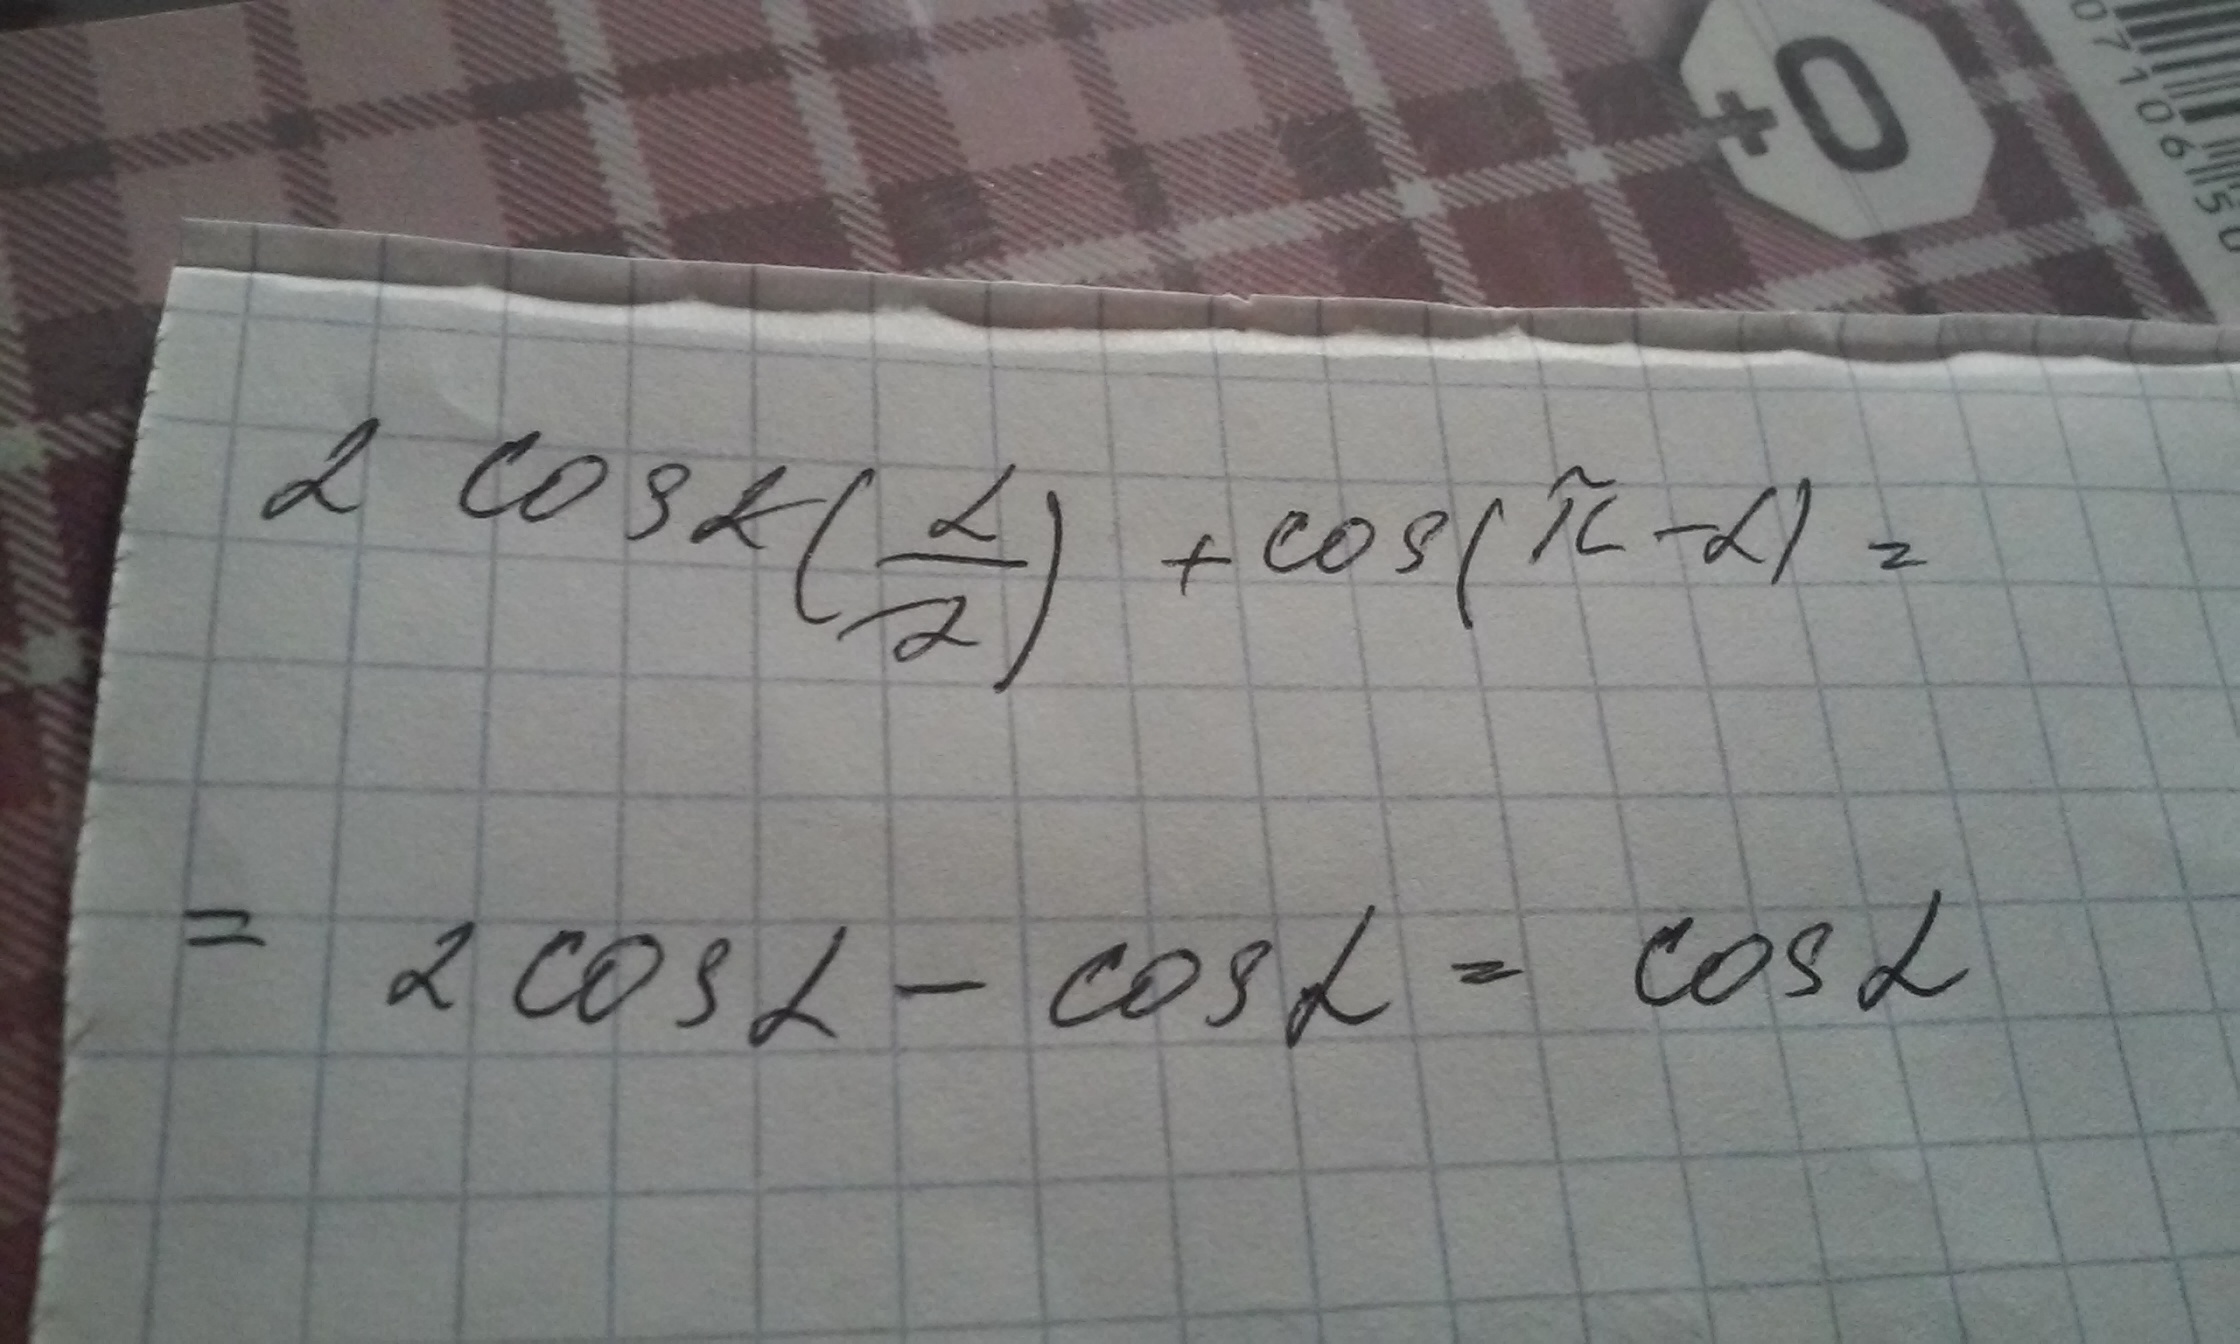 0+
071061150
2 cos α (α/2) + cos(π - α) =
= 2 cos α - cos α = cos α